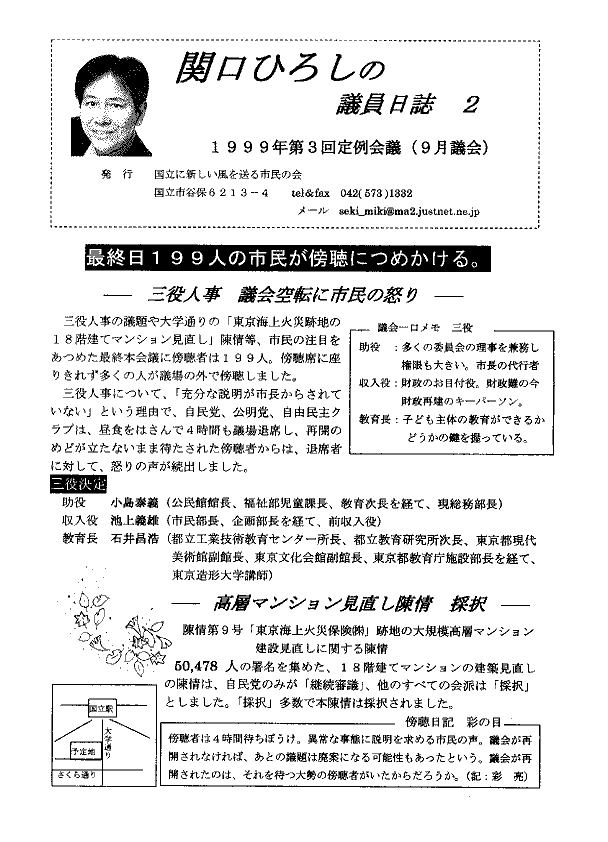 関口ひろしの
議員日誌 2
1999年第3回定例会議(9月議会)
発 行 国立に新しい風を送る市民の会
国立市谷保6213-4 tel&fax 042(573)1332
メール seki_miki@ma2.justnet.ne.jp
最終日199人の市民が傍聴につめかける。
── 三役人事 議会空転に市民の怒り ──
三役人事の議題や大学通りの「東京海上火災跡地の
18階建てマンション見直し」陳情等、市民の注目を
あつめた最終本会議に傍聴者は199人。傍聴席に座
りきれず多くの人が議場の外で傍聴しました。
三役人事について、「充分な説明が市長からされて
いない」という理由で、自民党、公明党、自由民主ク
ラブは、昼食をはさんで4時間も議場退席し、再開の
めどが立たないまま待たされた傍聴者からは、退席者
に対して、怒りの声が続出しました。
議会一口メモ 三役
助役 :多くの委員会の理事を兼務し
権限も大きい。市長の代行者
収入役:財政のお目付役。財政難の今
財政再建のキーパーソン。
教育長:子ども主体の教育ができるか
どうかの鍵を握っている。
三役決定
助役 小島泰義(公民館館長、福祉部児童課長、教育次長を経て、現総務部長)
収入役 池上義雄(市民部長、企画部長を経て、前収入役)
教育長 石井昌浩(都立工業技術教育センター所長、都立教育研究所次長、東京都現代
美術館副館長、東京文化会館副館長、東京都教育庁施設部長を経て、
東京造形大学講師)
── 高層マンション見直し陳情 採択 ──
陳情第9号「東京海上火災保険㈱」跡地の大規模高層マンション
建設見直しに関する陳情
50,478 人の署名を集めた、18階建てマンションの建築見直し
の陳情は、自民党のみが「継続審議」、他のすべての会派は「採択」
としました。「採択」多数で本陳情は採択されました。
国立駅
大学通り
予定地
さくら通り
傍聴日記 彩の目
傍聴者は4時間待ちぼうけ。異常な事態に説明を求める市民の声。議会が再
開されなければ、あとの議題は廃案になる可能性もあったという。議会が再
開されたのは、それを待つ大勢の傍聴者がいたからだろうか。(記:彩 亮)